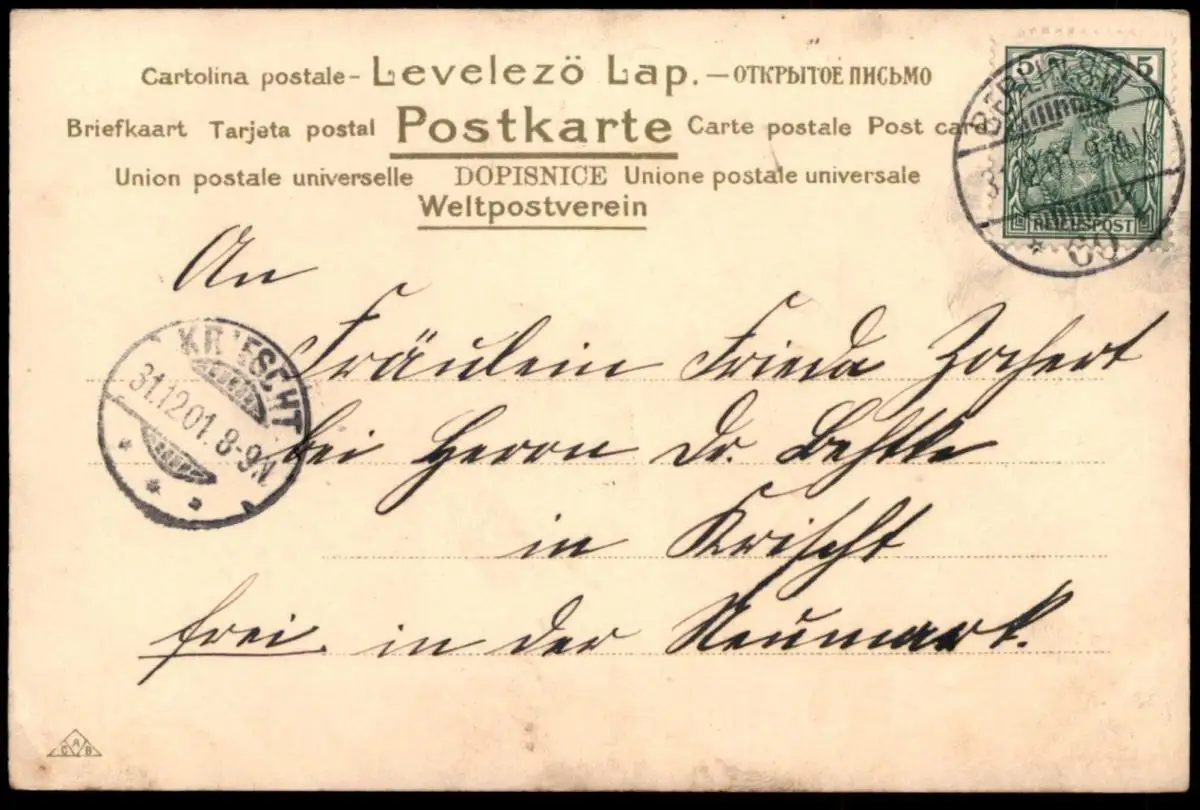 Cartolina postale- Levelező Lap. — ОТКРЫТОЕ ПИСЬМО
Briefkaart Tarjeta postal Postkarte Carte postale Post card
Union postale universelle DOPISNICE Unione postale universale
Weltpostverein
5 5
BERLIN S.W.
31.12.01. 9-10.V.
* 60
REICHSPOST
An
Fräulein Frieda Zochert
KRIESCHT
31.12.01. 8-9.N.
bei Herrn Dr. Bethke
in Krischt
frei. in der Neumark.
C A B